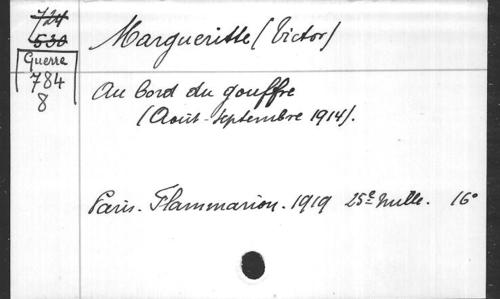 724
530
Guerre
784
8
Margueritte (Victor)
Au bord du gouffre
(Août-Septembre 1914).
Paris. Flammarion. 1919 25e mille. 16°